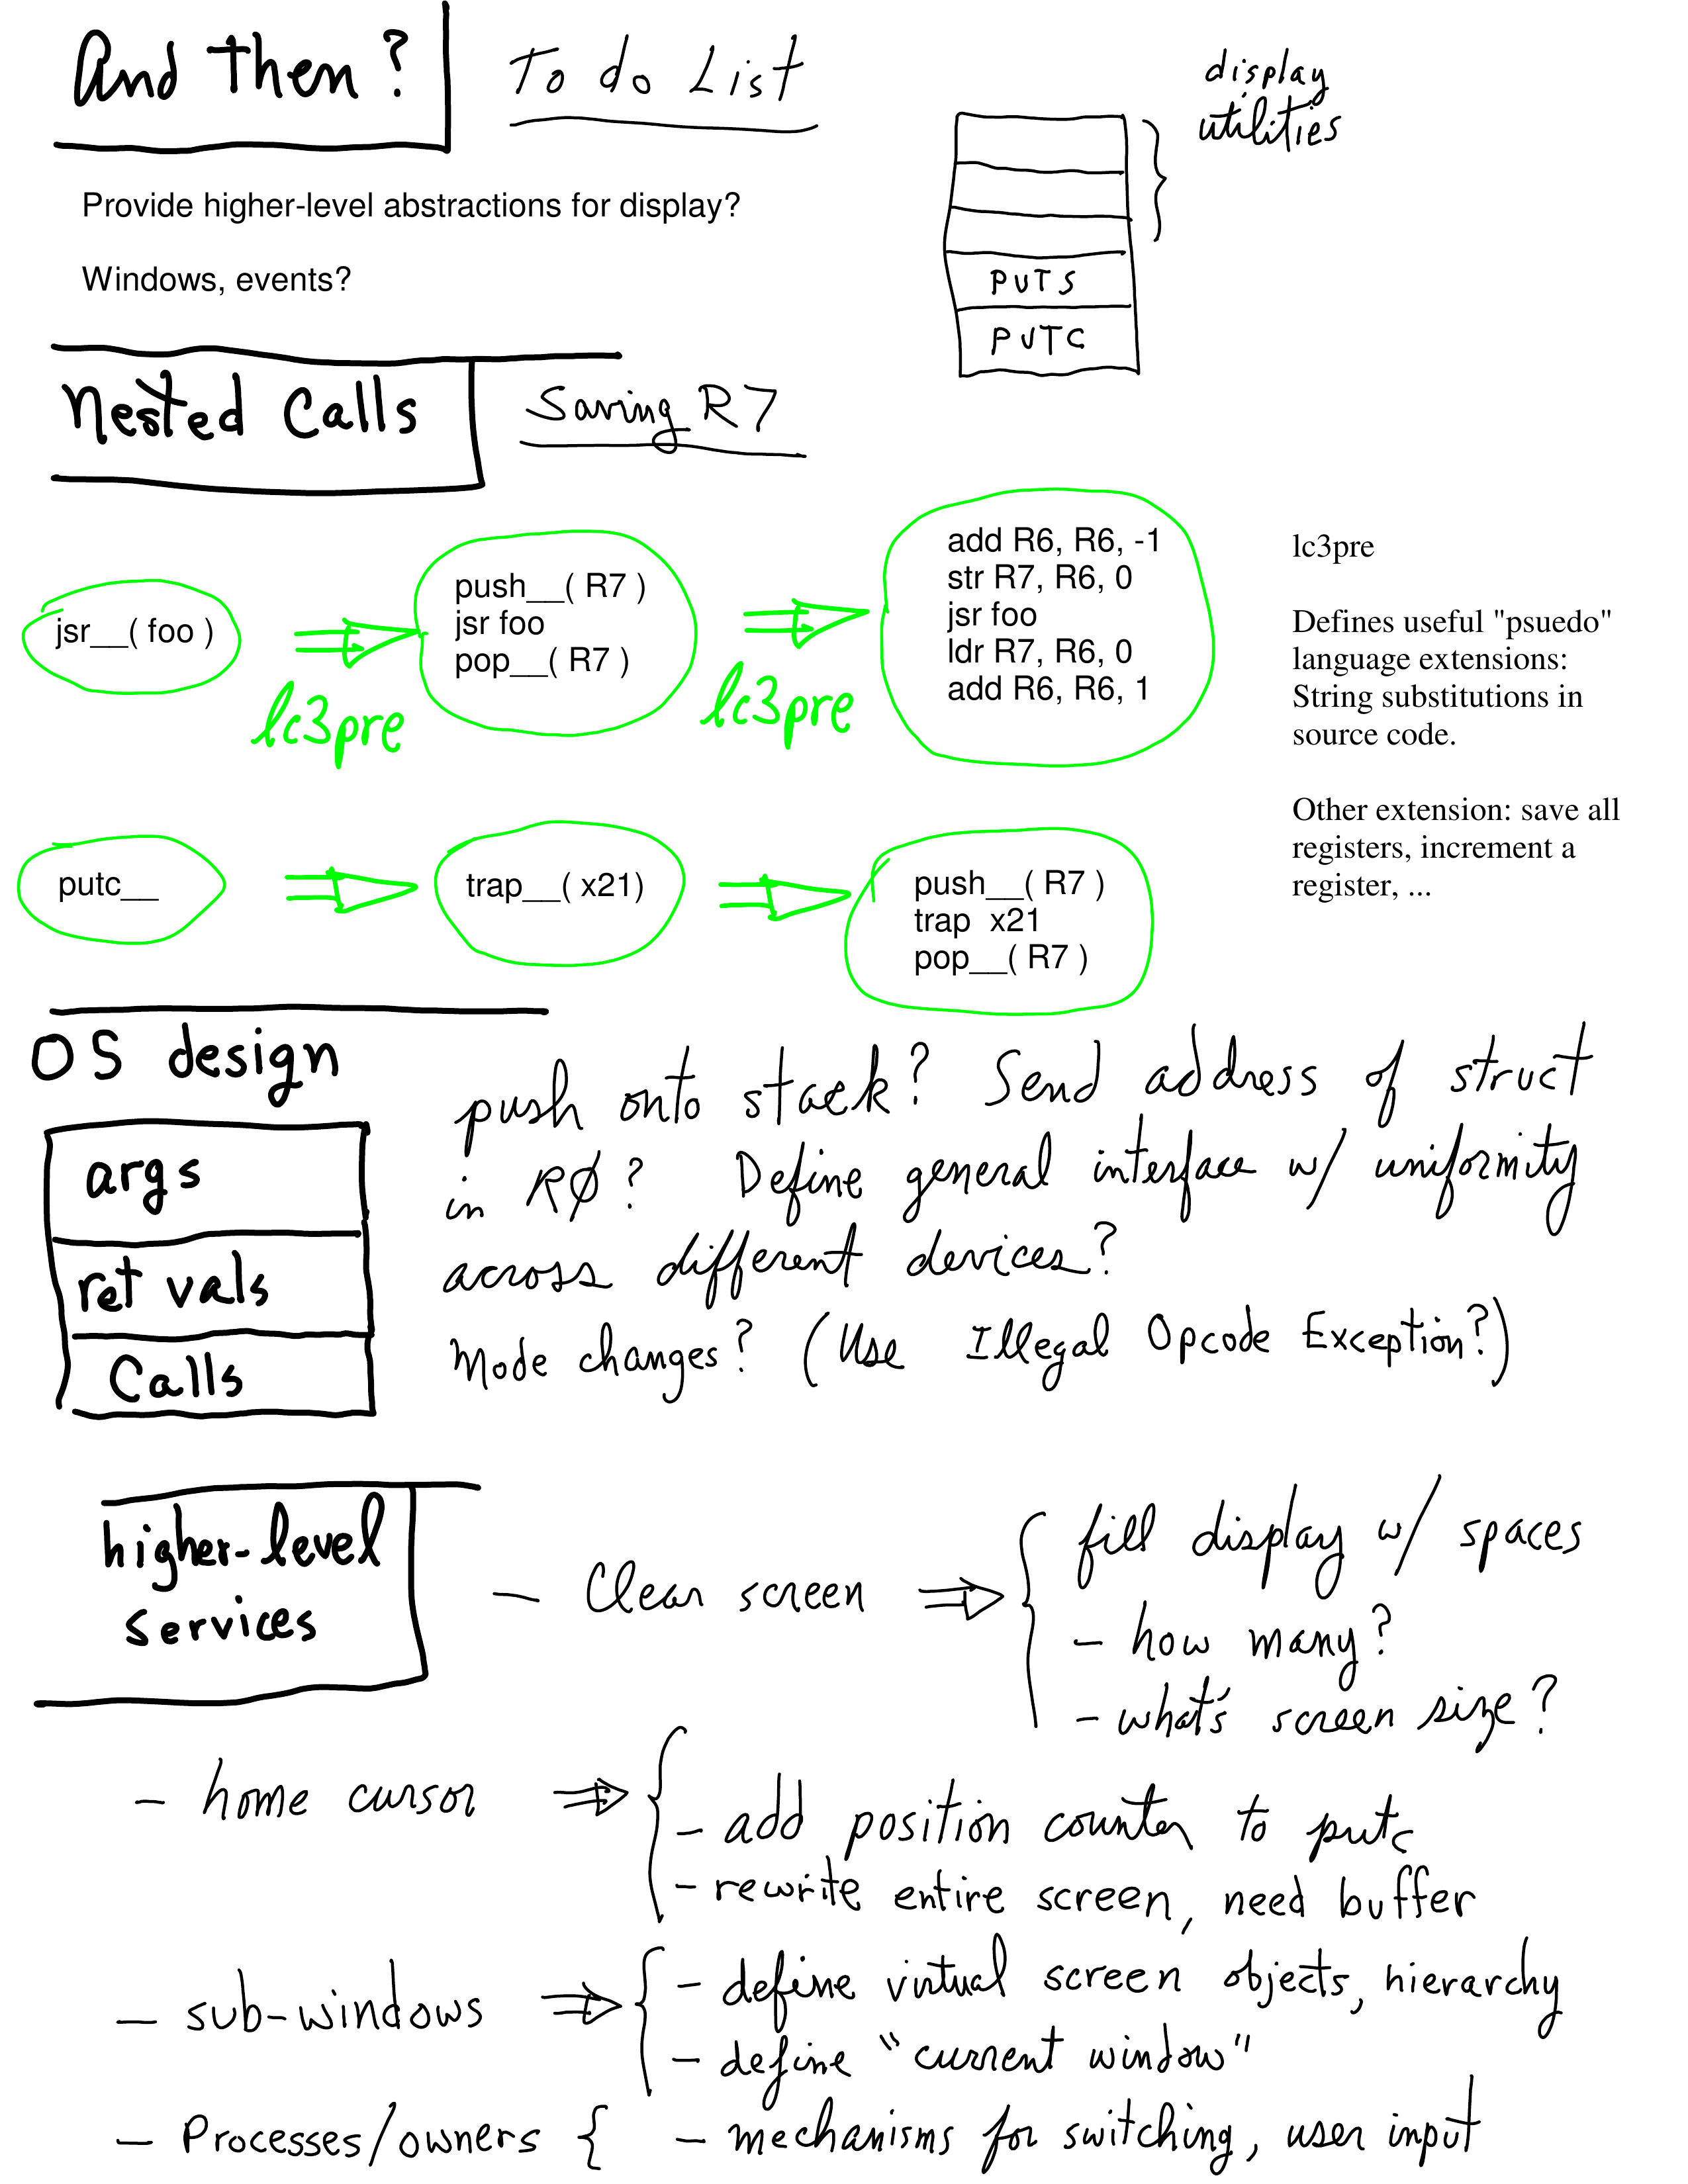 And Then?
To do List
display
utilities
Provide higher-level abstractions for display?
Windows, events?
PUTS
PUTC
Nested Calls
Saving R7
jsr__( foo )
lc3pre
push__( R7 )
jsr foo
pop__( R7 )
lc3pre
add R6, R6, -1
str R7, R6, 0
jsr foo
ldr R7, R6, 0
add R6, R6, 1
lc3pre
Defines useful "psuedo"
language extensions:
String substitutions in
source code.
Other extension: save all
registers, increment a
register, ...
putc__
trap__( x21)
push__( R7 )
trap  x21
pop__( R7 )
OS design
args
ret vals
Calls
push onto stack? Send address of struct
in RØ? Define general interface w/ uniformity
across different devices?
Mode changes? (Use Illegal Opcode Exception?)
higher-level
services
- Clear screen
fill display w/ spaces
- how many?
- what's screen size?
- home cursor
- add position counter to putc
- rewrite entire screen, need buffer
- sub-windows
- define virtual screen objects, hierarchy
- define "current window"
- Processes/owners { - mechanisms for switching, user input